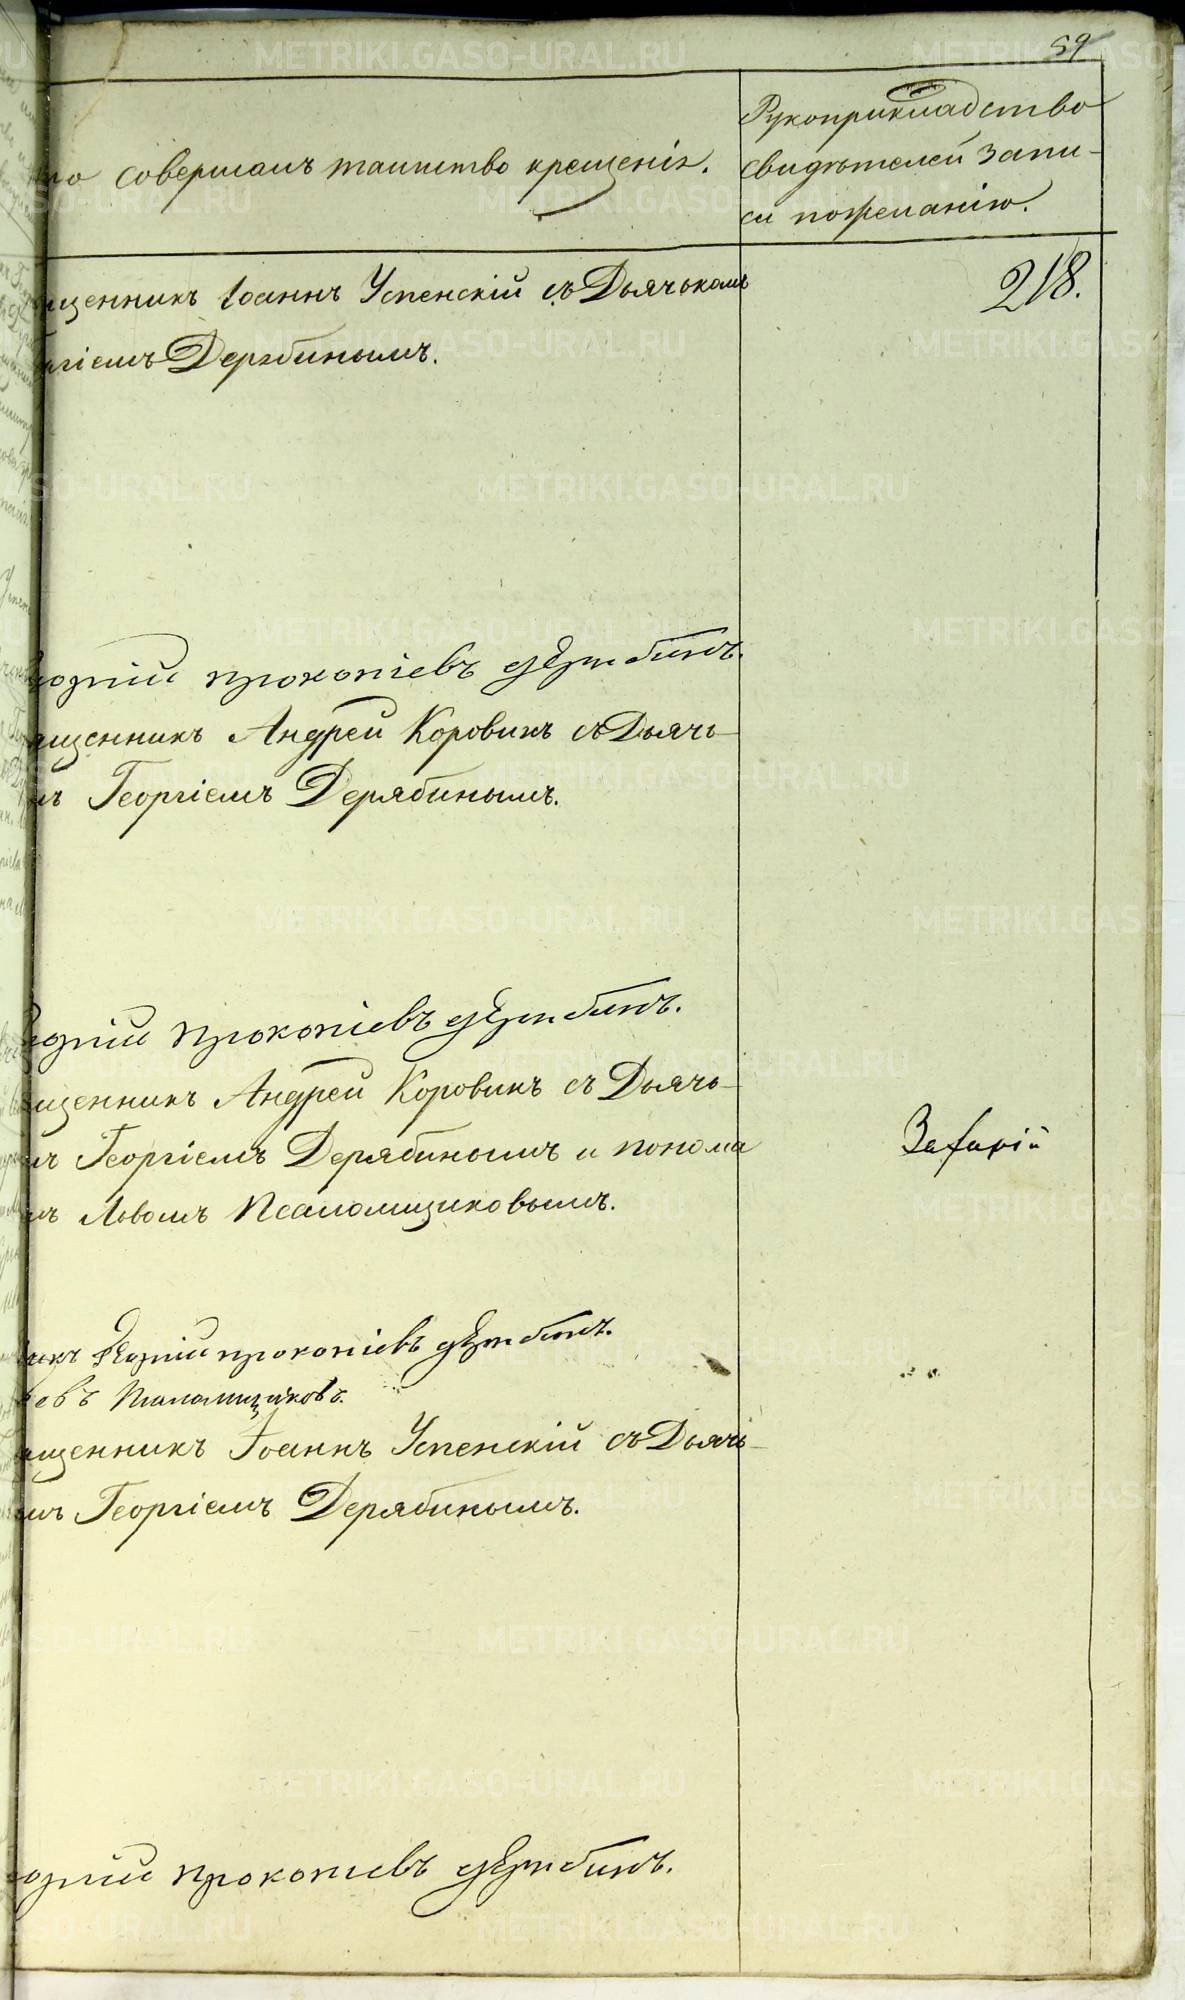 59
кто совершалъ таинство крещенія.
Рукоприкладство
свидѣтелей запи-
си по желанію.
218.
щенникъ Іоаннъ Успенскій съ Дьячькомъ
ргіемъ Дерябинымъ.
оргій Прокопіевъ Дерябинъ.
ященникъ Андрей Коровинъ съ Дьячь-
мъ Георгіемъ Дерябинымъ.
оргій Прокопіевъ Дерябинъ.
ященникъ Андрей Коровинъ съ Дьячь-
мъ Георгіемъ Дерябинымъ и понома
мъ Львомъ Псаломщиковымъ.
Захарій
чекъ Георгій Прокопіевъ Дерябинъ.
Псаломщиковъ.
ященникъ Іоаннъ Успенскій съ Дьячь-
омъ Георгіемъ Дерябинымъ.
оргій Прокопіевъ Дерябинъ.
METRIKI.GASO-URAL.RU